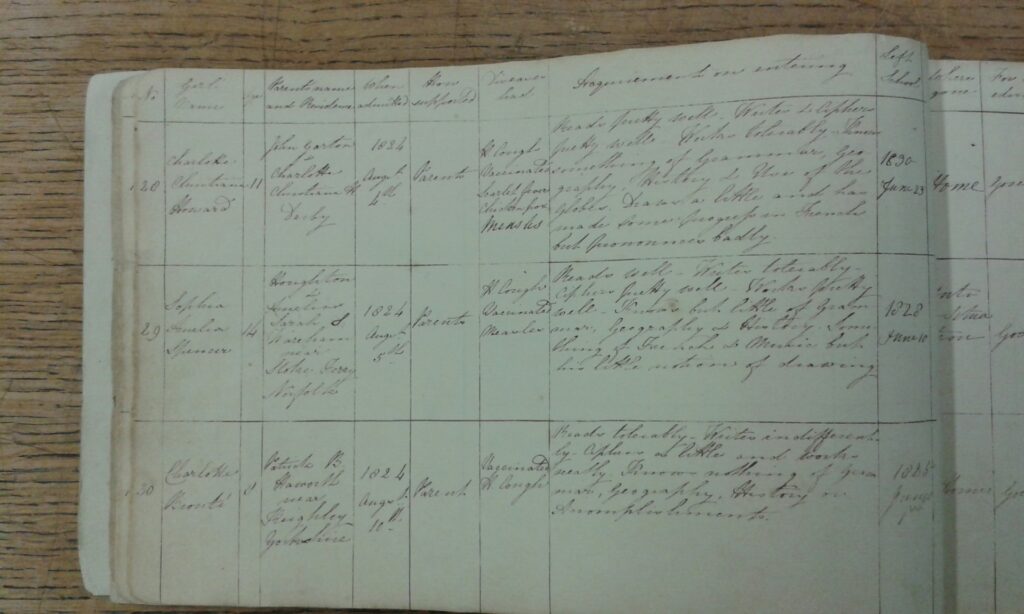 No
Girls Name
Age
Parents name and Residence
When admitted
How supported
Diseases had
Acquirements on entering
Left School
Where gone
For
28
Charlotte
Christiana
Howard
11
John Garton
&
Charlotte
Christiana H
Derby
1824
Augst
4th
Parents
H Cough
Vaccinated
Scarlet fever
Chicken pox
Measles
Reads pretty well - Writes & Ciphers
pretty well - Works tolerably - Knows
something of Grammar, Geo
graphy, History & Use of the
Globes. Draws a little and has
made some progress in French
but pronounces badly
1830
June 23
Home
29
Sophia
Amelia
Spencer
14
Houghton
&
Sarah S
near
Stoke Ferry
Norfolk
1824
Augst
5th
Parents
H Cough
Vaccinated
Measles
Reads well - Writes tolerably -
Ciphers pretty well - Works pretty
well - Knows but little of Gram
mar, Geography & History. Some
thing of French & Music but
has little notion of drawing
1828
June 18
30
Charlotte
Bronté
8
Patrick B
Haworth
near
Keighley
Yorkshire
1824
Augst
10th
Parent
Vaccinated
H Cough
Reads tolerably - Writes indifferent
ly - Ciphers a little and works
neatly. Knows nothing of Gram
mar, Geography, History or
Accomplishments.
1825
June
Home